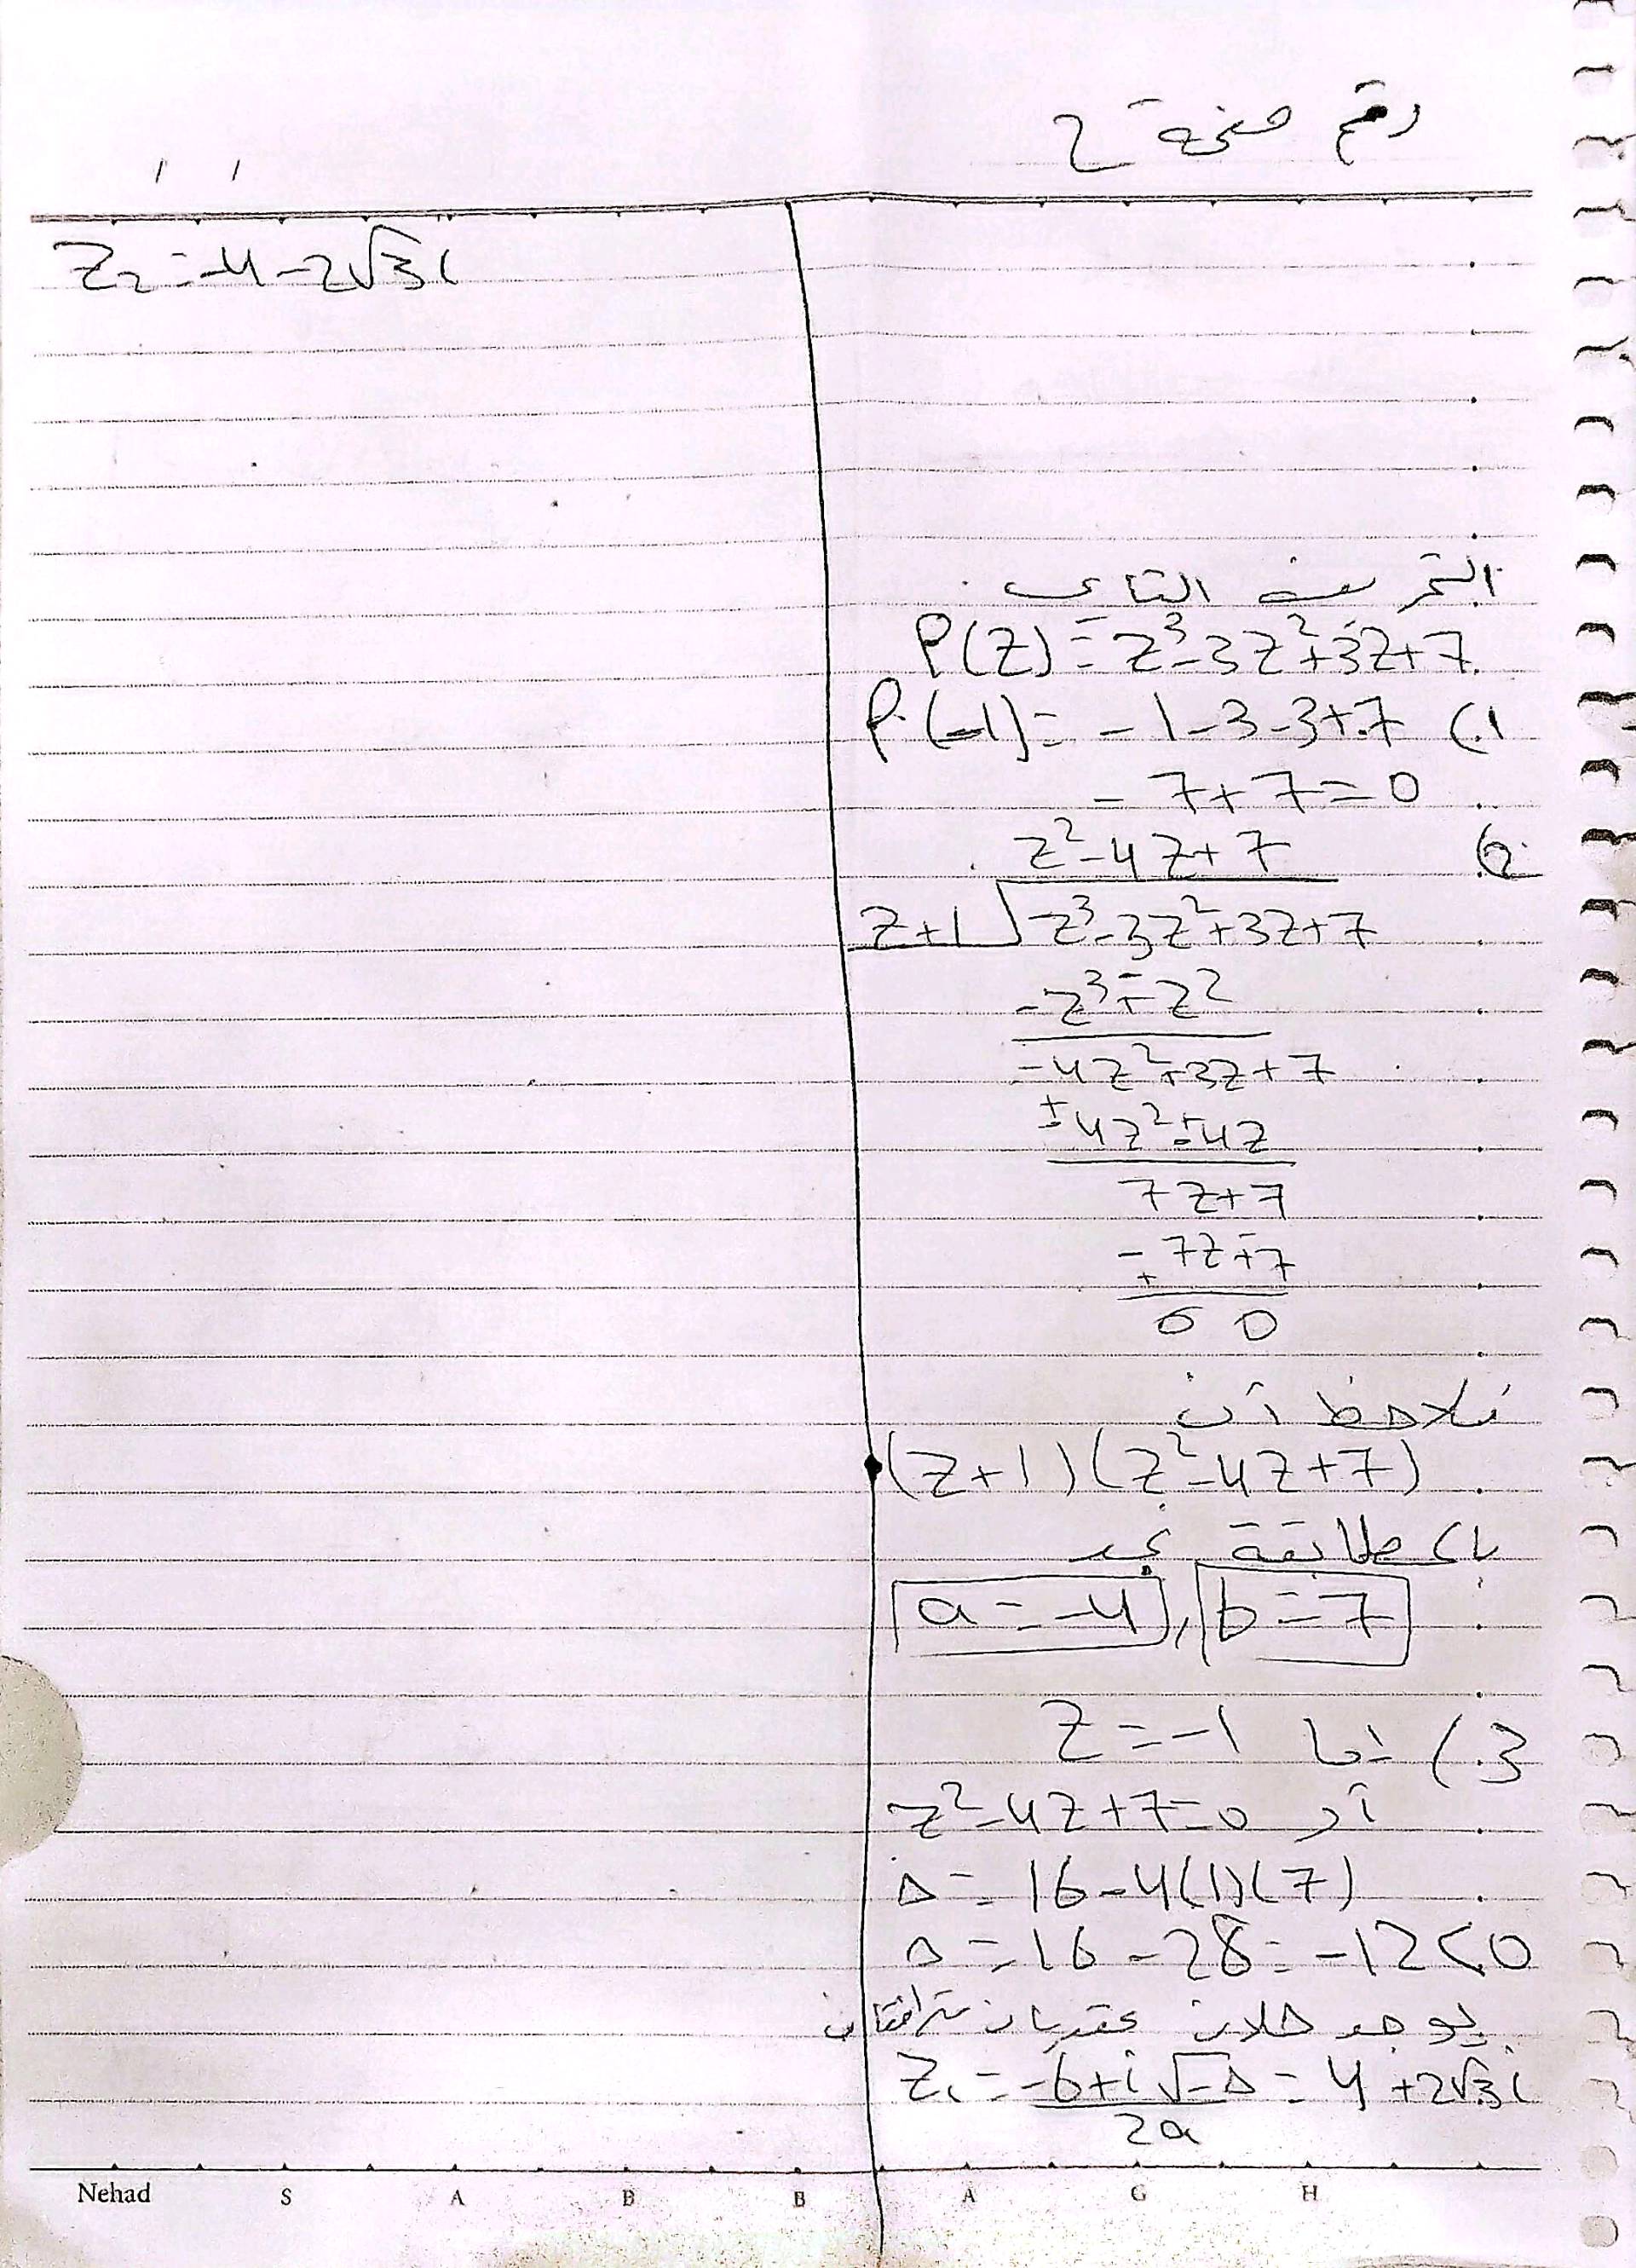 رقم صفحة 2
التمرين الثاني
P(Z) = Z³-3Z²+3Z+7
P(-1) = -1-3-3+7 (1
- 7+7=0
2)
Z²-4Z+7
Z+1 Z³-3Z²+3Z+7
-Z³+-Z²
-4Z²+3Z+7
±4Z²±4Z
7Z+7
-+7Z+-7
0 0
نلاحظ أن
(Z+1)(Z²-4Z+7)
بالمطابقة نجد
a=-4, b=7
3) إما Z=-1
أو Z²-4Z+7=0
Δ=16-4(1)(7)
Δ=16-28=-12<0
يوجد حلان عقديان مترافقان
Z₁=-b+i√-Δ/2a=4+2√3i
Z₂=-4-2√3i
Nehad S A B B A G H